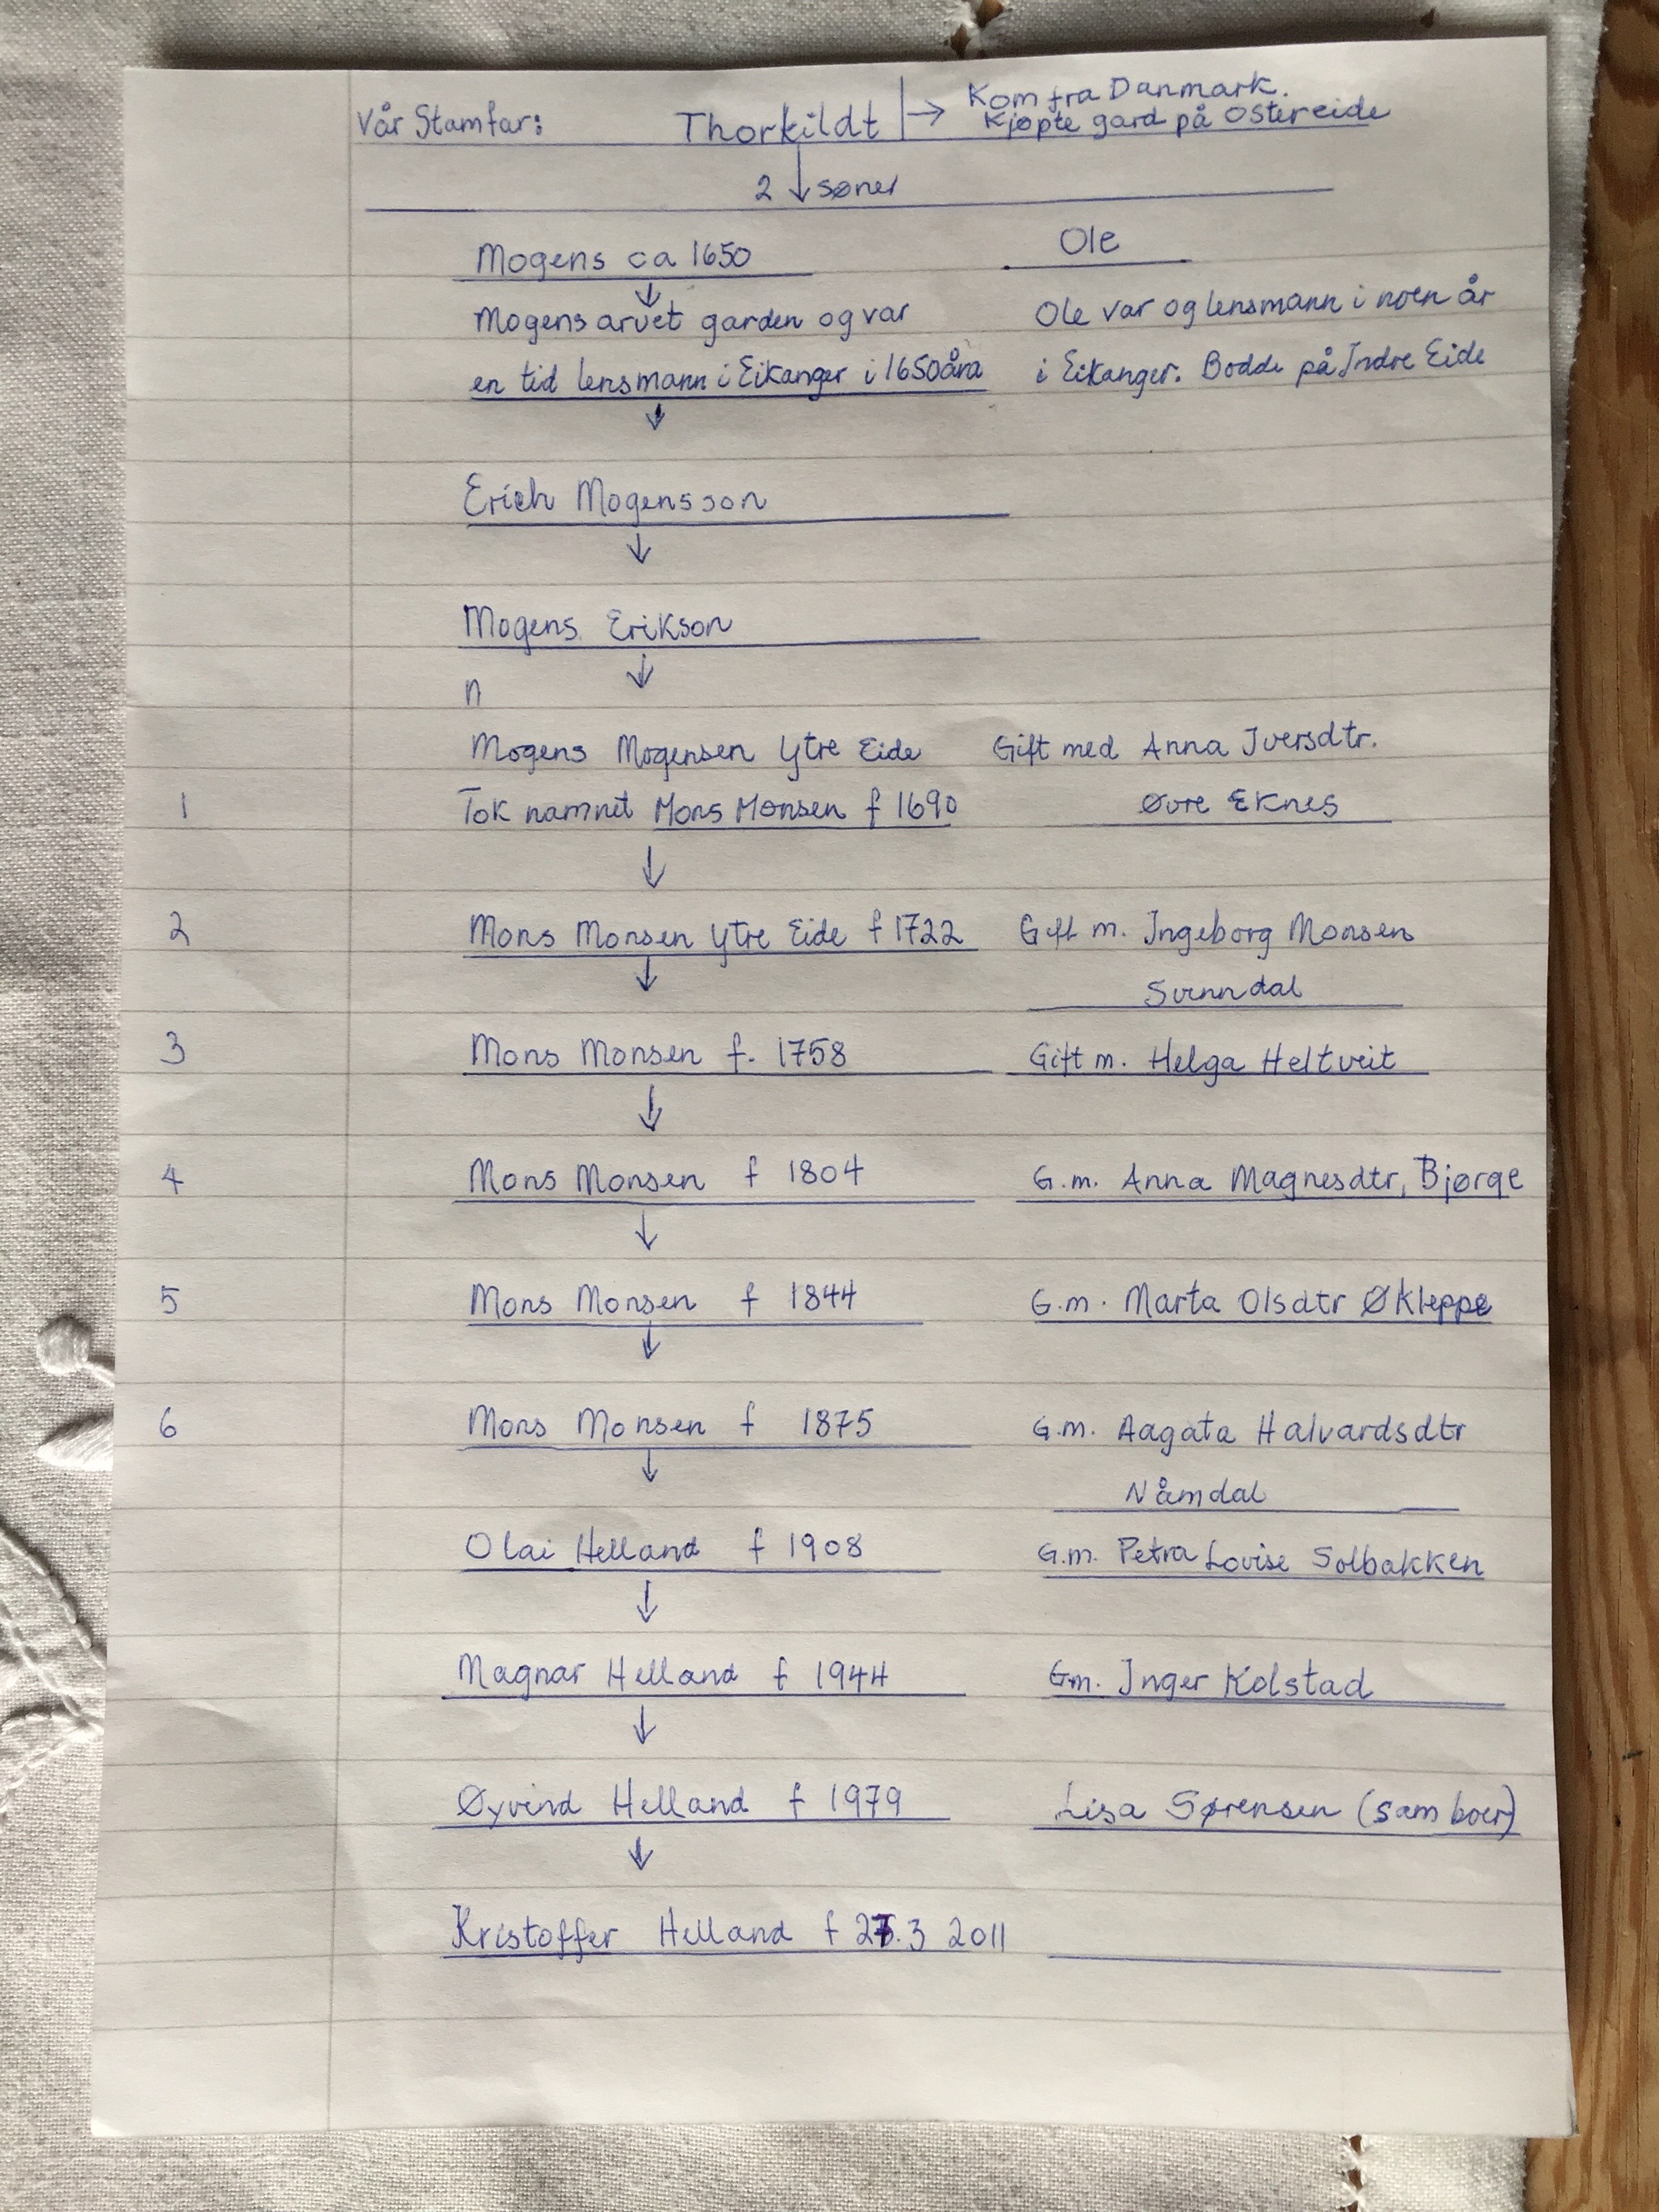 Vår Stamfar: Thorkildt → Kom fra Danmark.
Kjøpte gard på Ostereide
2 ↓ søner
Mogens ca 1650 Ole
↓
Mogens arvet garden og var Ole var og lensmann i noen år
en tid lensmann i Eikanger i 1650åra i Eikanger. Bodde på Indre Eide
↓
Erich Mogensson
↓
Mogens Erikson
↓
n
Mogens Mogensen Ytre Eide Gift med Anna Iversdtr.
1 Tok namnet Mons Monsen f 1690 Øvre Eknes
↓
2 Mons Monsen Ytre Eide f 1722 Gift m. Ingeborg Monsen
↓ Svenndal
3 Mons Monsen f. 1758 Gift m. Helga Heltveit
↓
4 Mons Monsen f 1804 G.m. Anna Magnesdtr, Bjørge
↓
5 Mons Monsen f 1844 G.m. Marta Olsdtr Økleppe
↓
6 Mons Monsen f 1875 G.m. Aagata Halvardsdtr
↓ Nåmdal
Olai Helland f 1908 G.m. Petra Lovise Solbakken
↓
Magnar Helland f 1944 Gm. Inger Kolstad
↓
Øyvind Helland f 1979 Lisa Sørensen (samboer)
↓
Kristoffer Helland f 27.3 2011